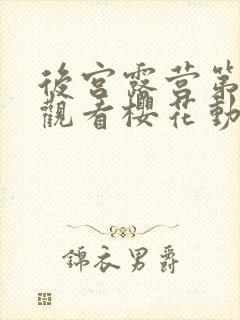 後宮露營第
觀看櫻花動
錦衣男爵